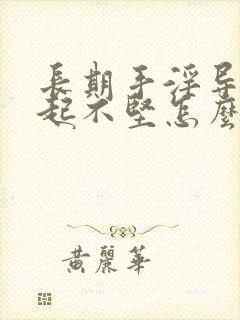 長期手淫导
起不堅怎麼
黄麗華